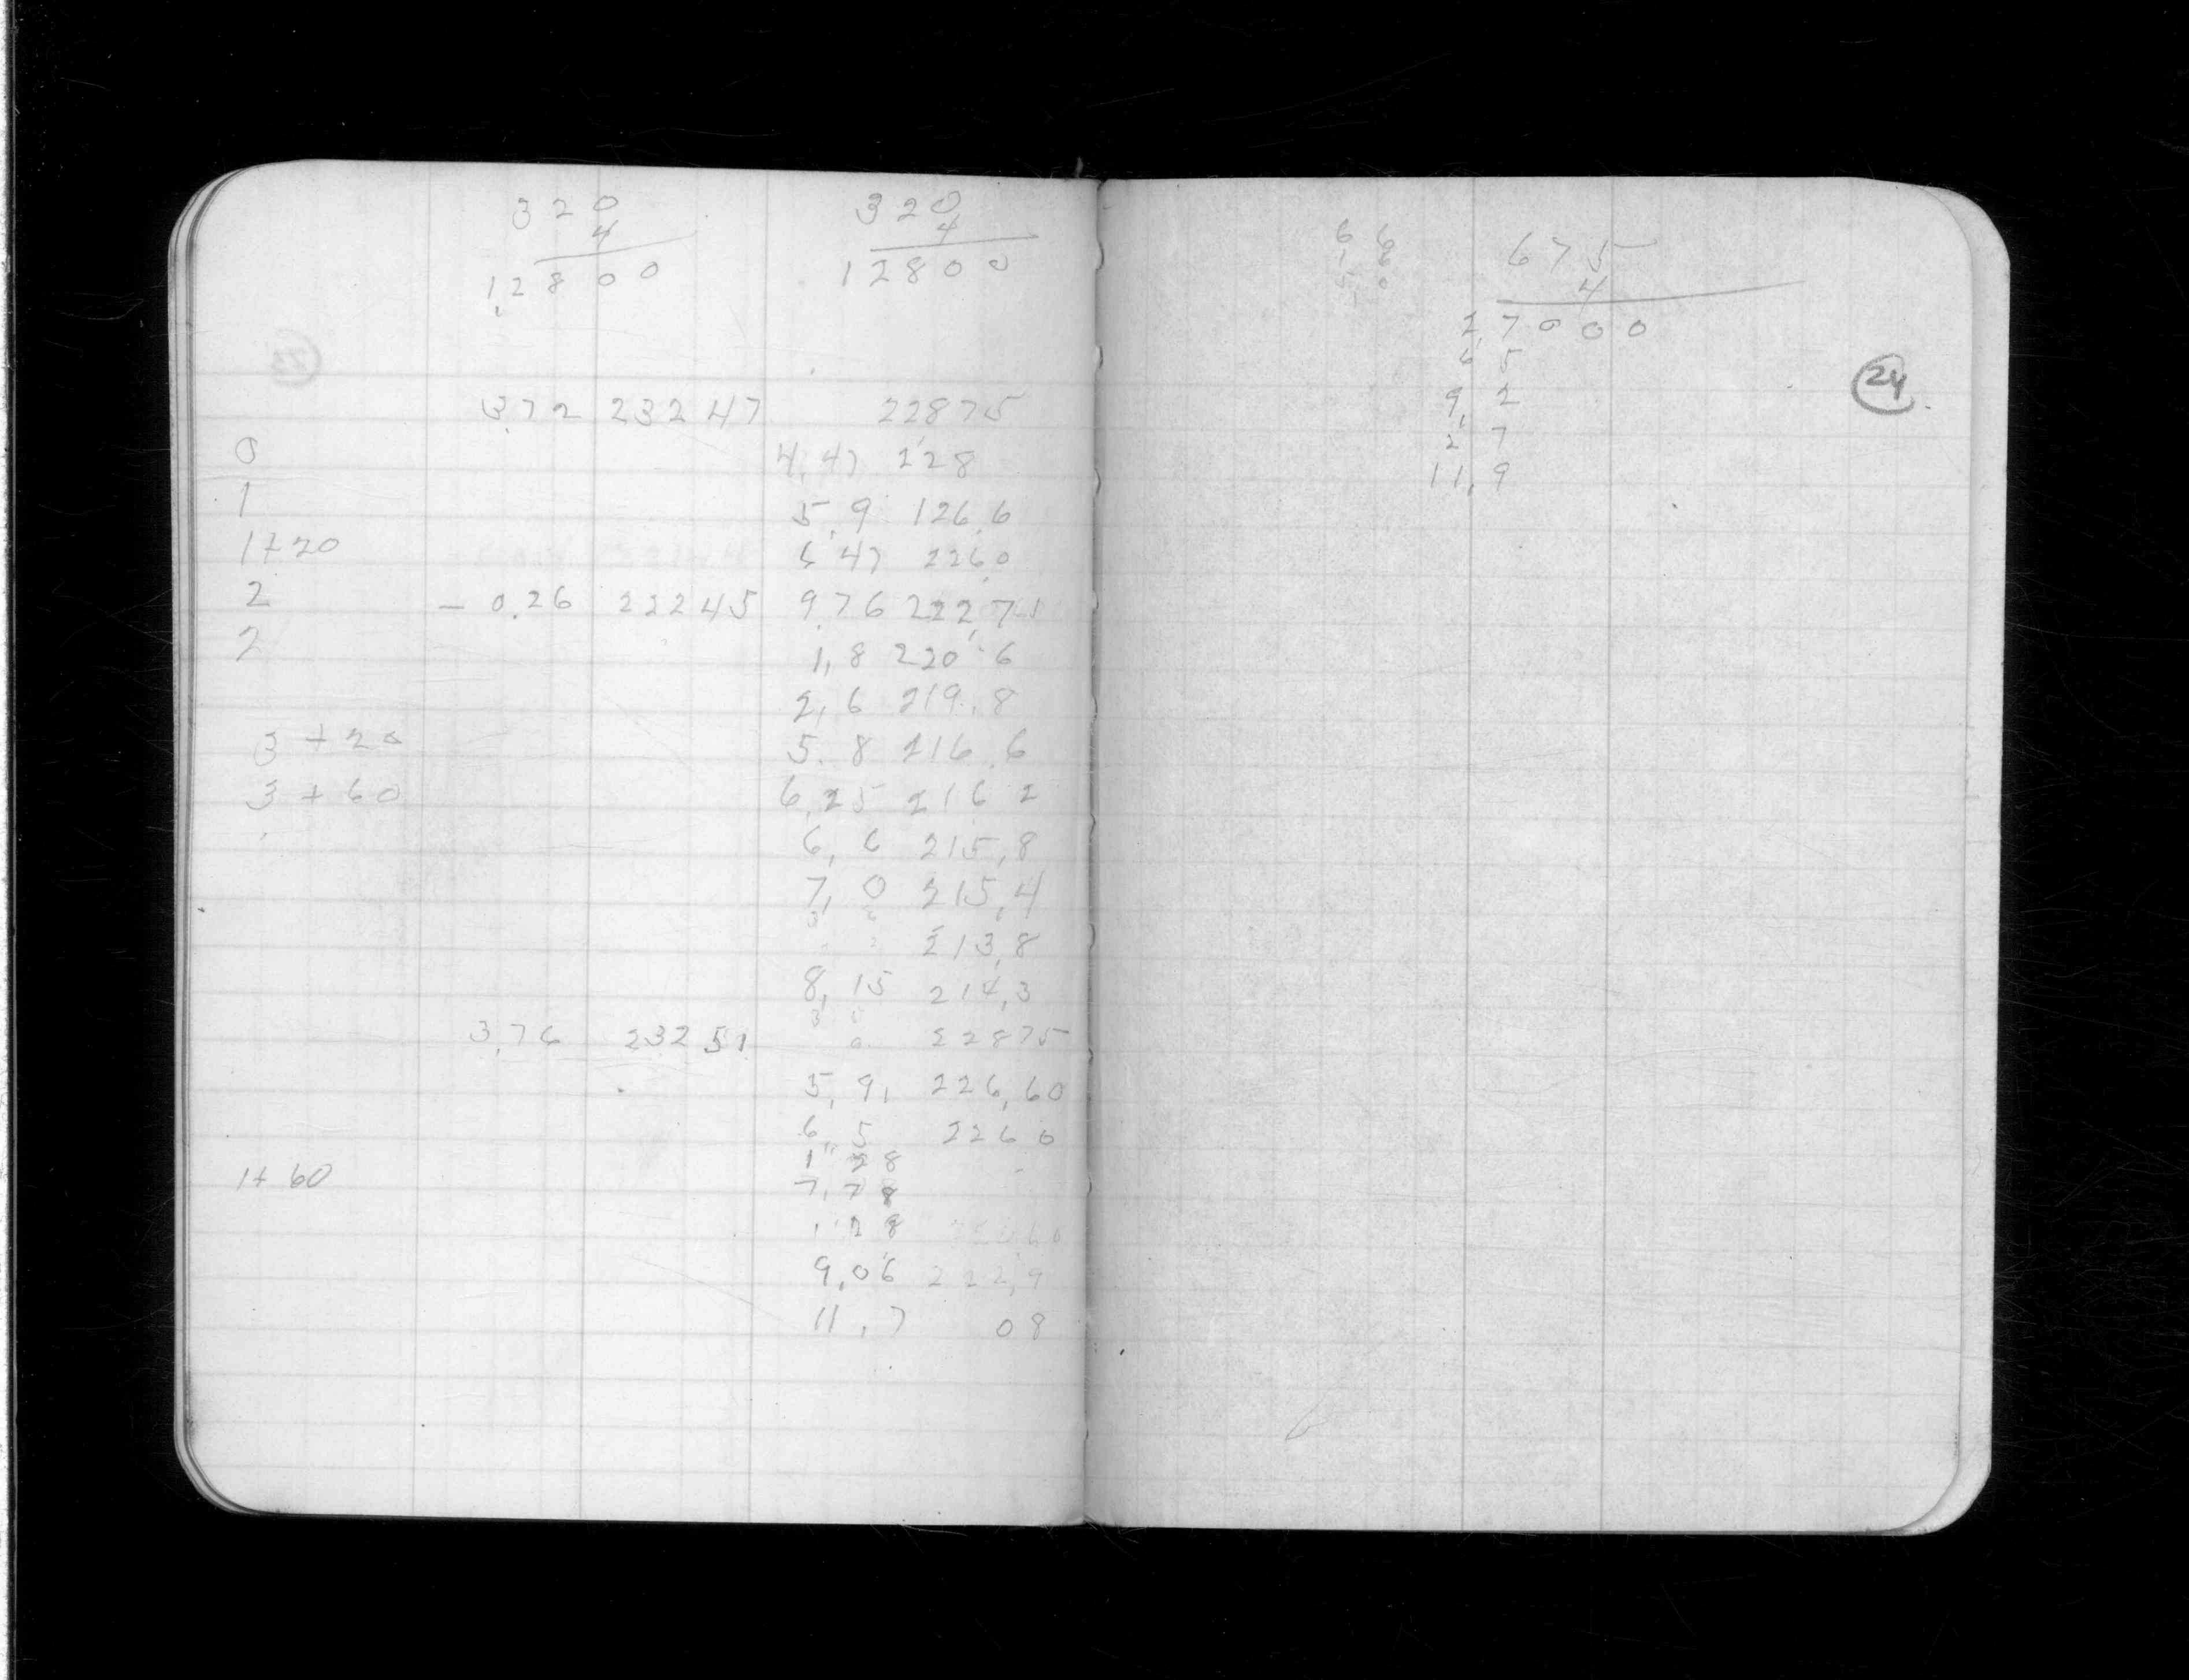 320 320
4 4
1,2800 12800
3.72 23247 22875
0 4,47 228
1 5,9 126,6
1+20 6 47 226,0
2 - 0.26 22245 9.76 222,71
2 1,8 220.6
2,6 219.8
3 + 20 5.8 216.6
3 + 60 6,25 216 2
6,6 215,8
7,0 215,4
213,8
8,15 214,3
3.76 23251 22875
5,9, 226,60
6,5 226 0
1 28
1+ 60 7,78
1 28
9,06 222,9
11,7 08
6 6
675
4
27000
6 5
9,2
2 7
11,9
24